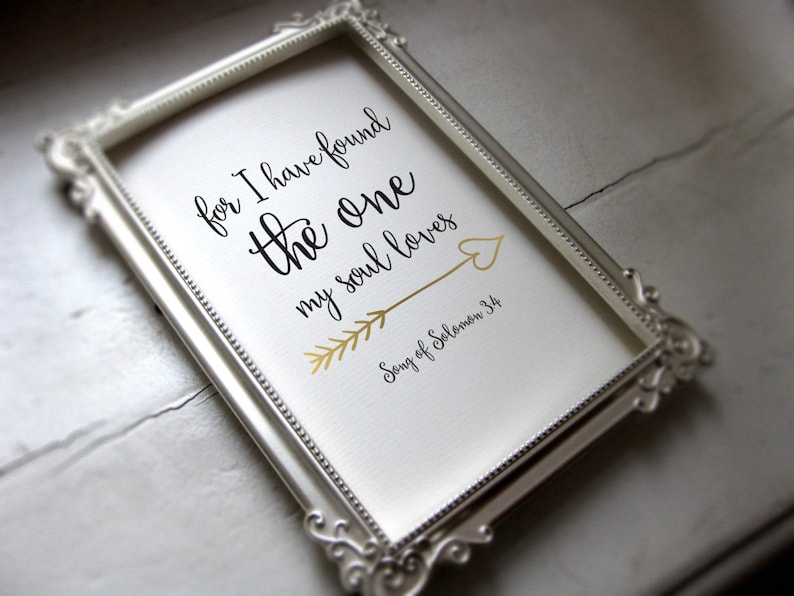 for I have found
the one
my soul loves
Song of Solomon 3:4